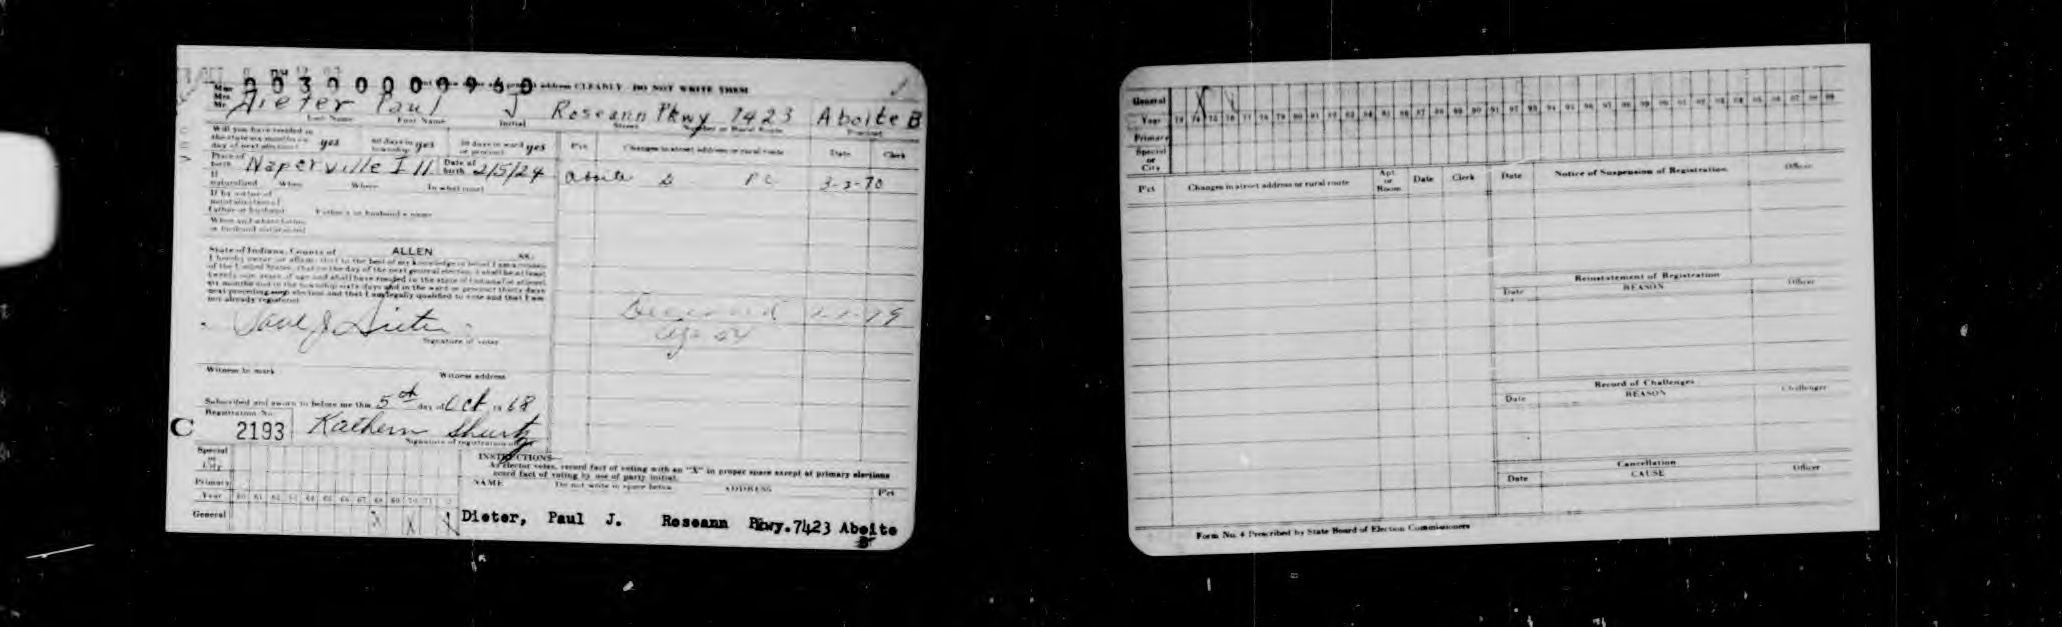 00300000960
address CLEARLY DO NOT WRITE THEM
Mrs.
Mr. Dieter Paul J Roseann Pkwy 7423 Aboite B
Last Name First Name Initial Street Number or Rural Route Precinct
Will you have resided in
the state six months on
day of next election? yes 60 days in township yes 30 days in ward or precinct yes
Pct Changes in street address or rural route Date Clerk
Place of birth Naperville Ill Date of birth 2/5/24
Aboite D P C 3-3-70
If naturalized When Where In what court
If by virtue of
naturalization of
Father or husband Father's or husband's name
When and where father
or husband naturalized
State of Indiana, County of ALLEN SS.
I hereby swear or affirm that to the best of my knowledge or belief I am a citizen
of the United States, that on the day of the next general election, I shall be at least
twenty-one years of age and shall have resided in the state of Indiana for at least
six months and in the township sixty days and in the ward or precinct thirty days
next preceding such election and that I am legally qualified to vote and that I am
not already registered
Deceased 79
age 54
Paul J. Dieter
Signature of voter
Witness to mark Witness address
Subscribed and sworn to before me this 5th day of Oct 19 68
Registration No.
C 2193 Kathern Shurtz
Signature of registration
INSTRUCTIONS
As elector votes, record fact of voting with an "X" in proper space except at primary elections
record fact of voting by use of party initial.
NAME Do not write in space below ADDRESS Pct
Special
or
City
Primary
Year 60 61 62 63 64 65 66 67 68 69 70 71
General X X X
Dieter, Paul J. Roseann Pkwy. 7423 Aboite
B
General X
Year 73 74 75 76 77 78 79 80 81 82 83 84 85 86 87 88 89 90 91 92 93 94 95 96 97 98 99
Primary
Special
or
City
Pct Changes in street address or rural route Apt. or Room Date Clerk Date Notice of Suspension of Registration Officer
Reinstatement of Registration
Date REASON Officer
Record of Challenges
Date REASON Challenger
Cancellation
Date CAUSE Officer
Form No. 4 Prescribed by State Board of Election Commissioners